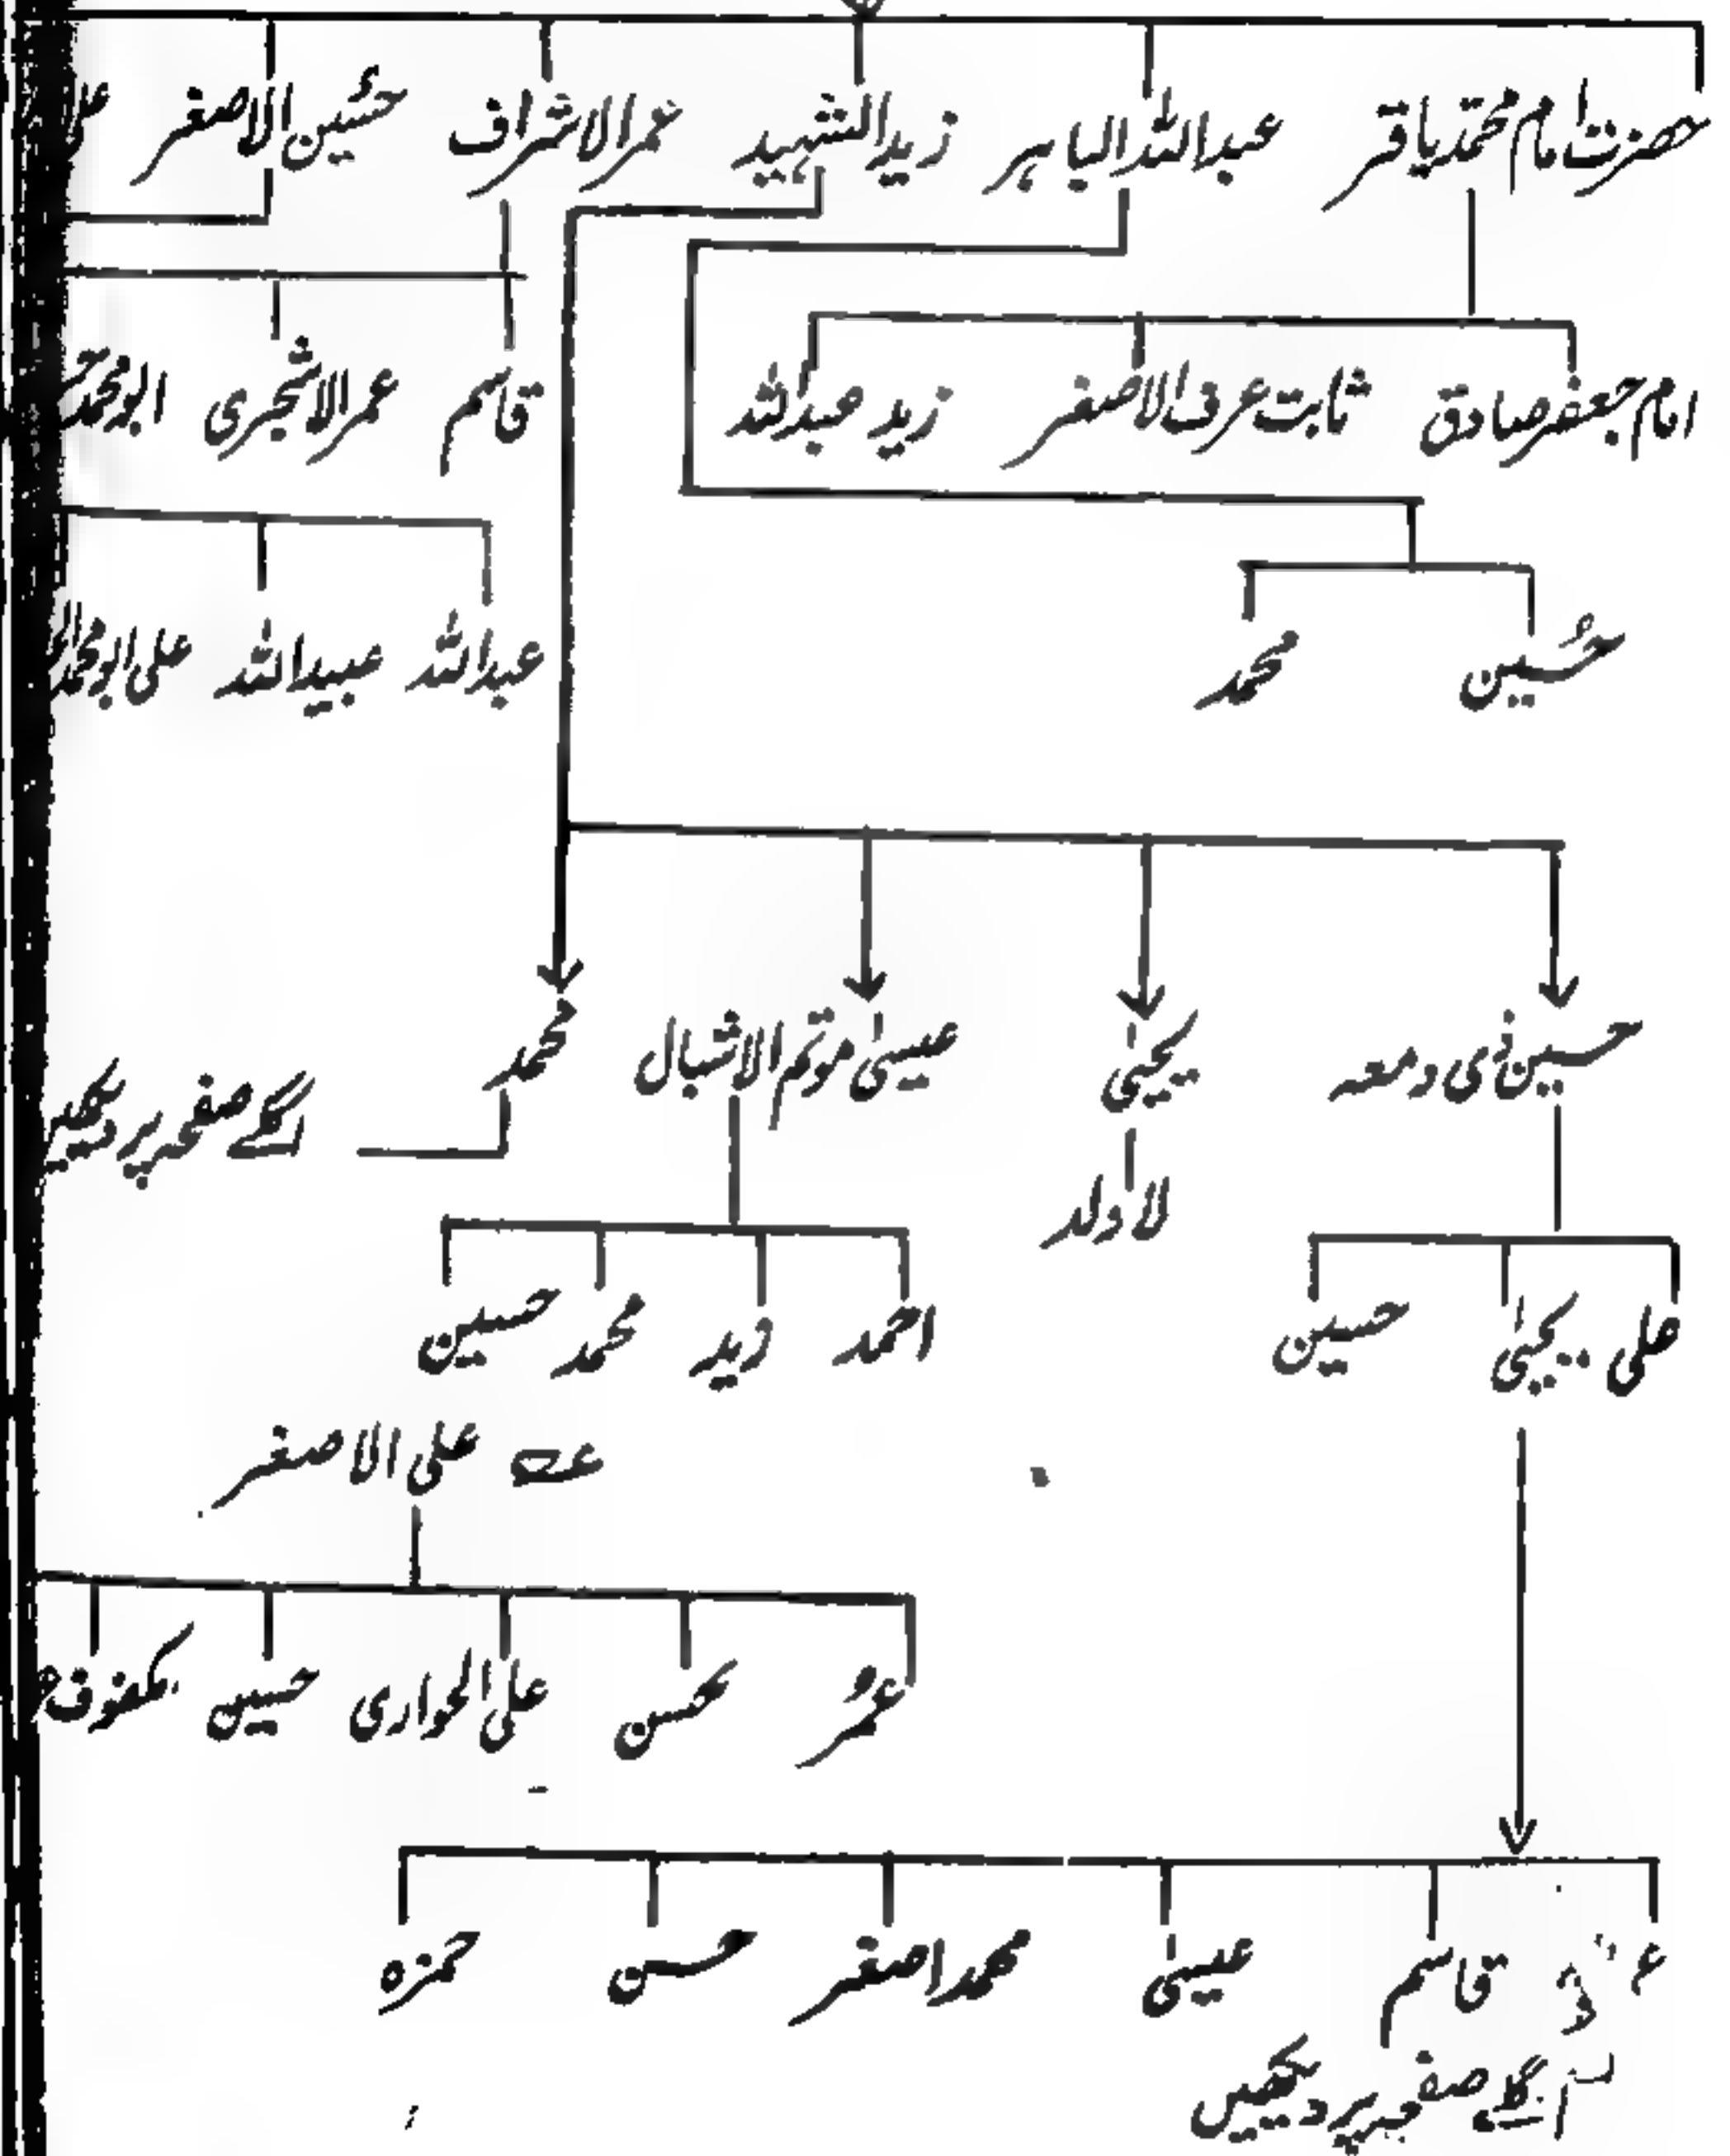 حضرت امام محمد باقر عبداللہ الباہر زید الشہید عمر الاشراف حسین الاصغر
امام جعفر صادق ثابت عرف الاصغر زید عبداللہ قاسم عمر الاشجری ابو محمد
حسین محمد عبداللہ عبیداللہ علی ابو محمد
حسین ذی دمعہ یحییٰ عیسیٰ موتم الاشبال محمد
اگلے صفحہ پر
لا ولد
علی یحییٰ حسین احمد زید محمد حسین
علی الاصغر
عمر حسن علی الحواری حسین مکفوف
قاسم عیسیٰ محمد اصغر حسن حمزہ
اگلے صفحہ پر دیکھیں